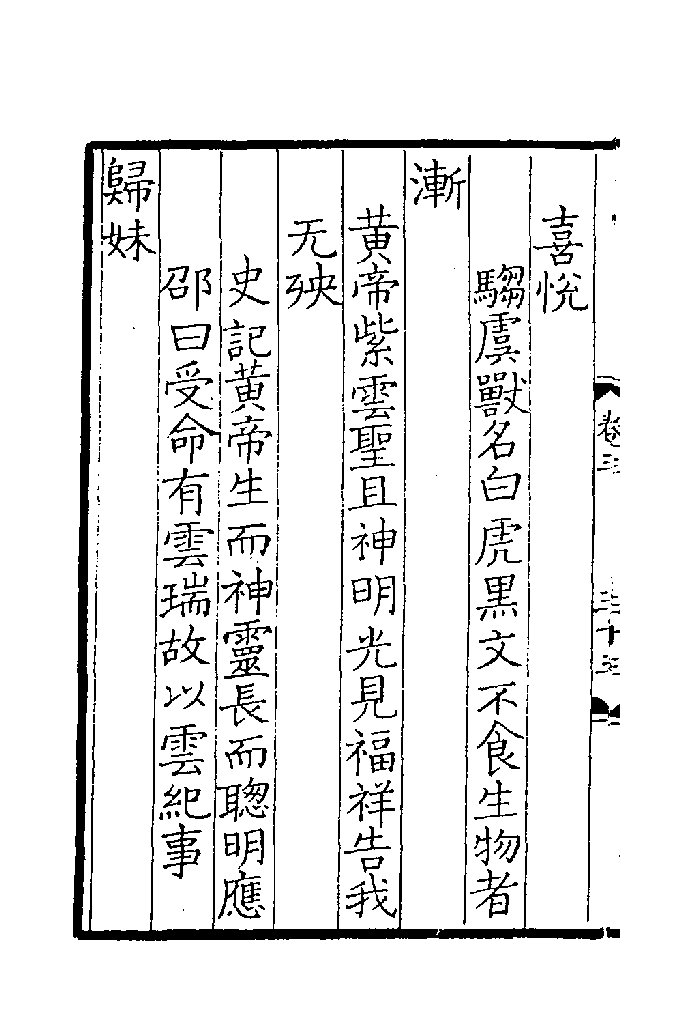 喜悅
騶虞獸名白虎黒文不食生物者
漸
黃帝紫雲聖且神明光見福祥告我
无殃
史記黃帝生而神靈長而聰明應
邵曰受命有雲瑞故以雲紀事
歸妹